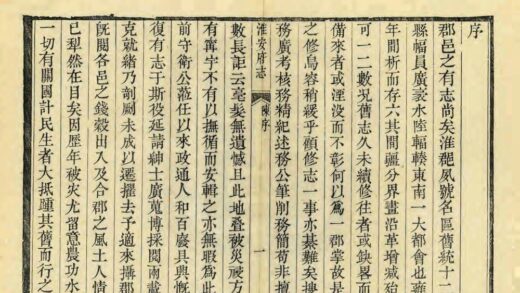 序
郡邑之有志尚矣淮郡夙號名區舊統十二
縣幅員廣袤水陸輻輳東南一大都會也雍
年間析而存六其間疆分界畫沿革增減殆
可一二數況舊志久未續修往者或缺畧而
備來者或湮没而不彰何以爲一郡掌故是
之修烏容稍緩乎顧修志一事亦綦難矣搜
務廣考核務精紀述務公筆削務簡苟非擅
淮安府志 陳序 一
數長詎云毫髮無遺憾且此地叠被災祲方
有寗宇不有以撫循而安輯之亦無暇爲此
前守衛公蒞任以來政通人和百廢具興慨
復有志于斯役延請紳士廣蒐博採閱兩載
克就緒乃剞劂未成以遷擢去予適來攝郡
既閱各邑之錢穀出入及合郡之風土人情
已犂然在目矣因歷年被灾尤留意農功水
一切有關國計民生者大抵踵其舊而行之